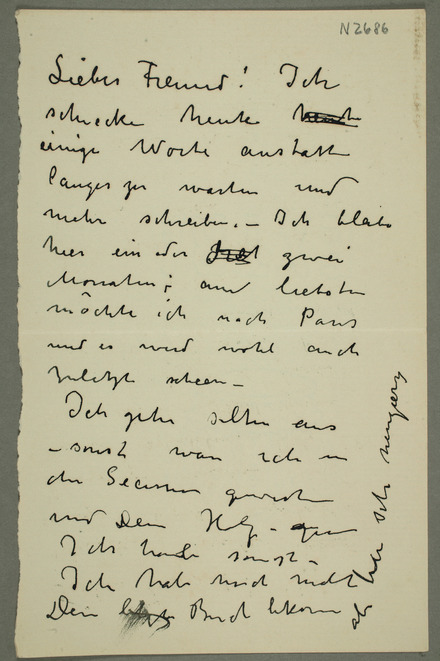 N2686
Lieber Freund! Ich
schicke heute
einige Worte anstatt
länger zu warten und
mehr schreiben. – Ich bleibe
hier ein oder zwei
Monaten; am liebsten
möchte ich nach Paris
und es wird wohl auch
zuletzt
Ich gehe selten aus
– sonst war ich in
der Secession gewesen
und Dein
Ich habe sonst –
Ich habe noch nicht
Dein Buch bekommen
bin sehr neugierig